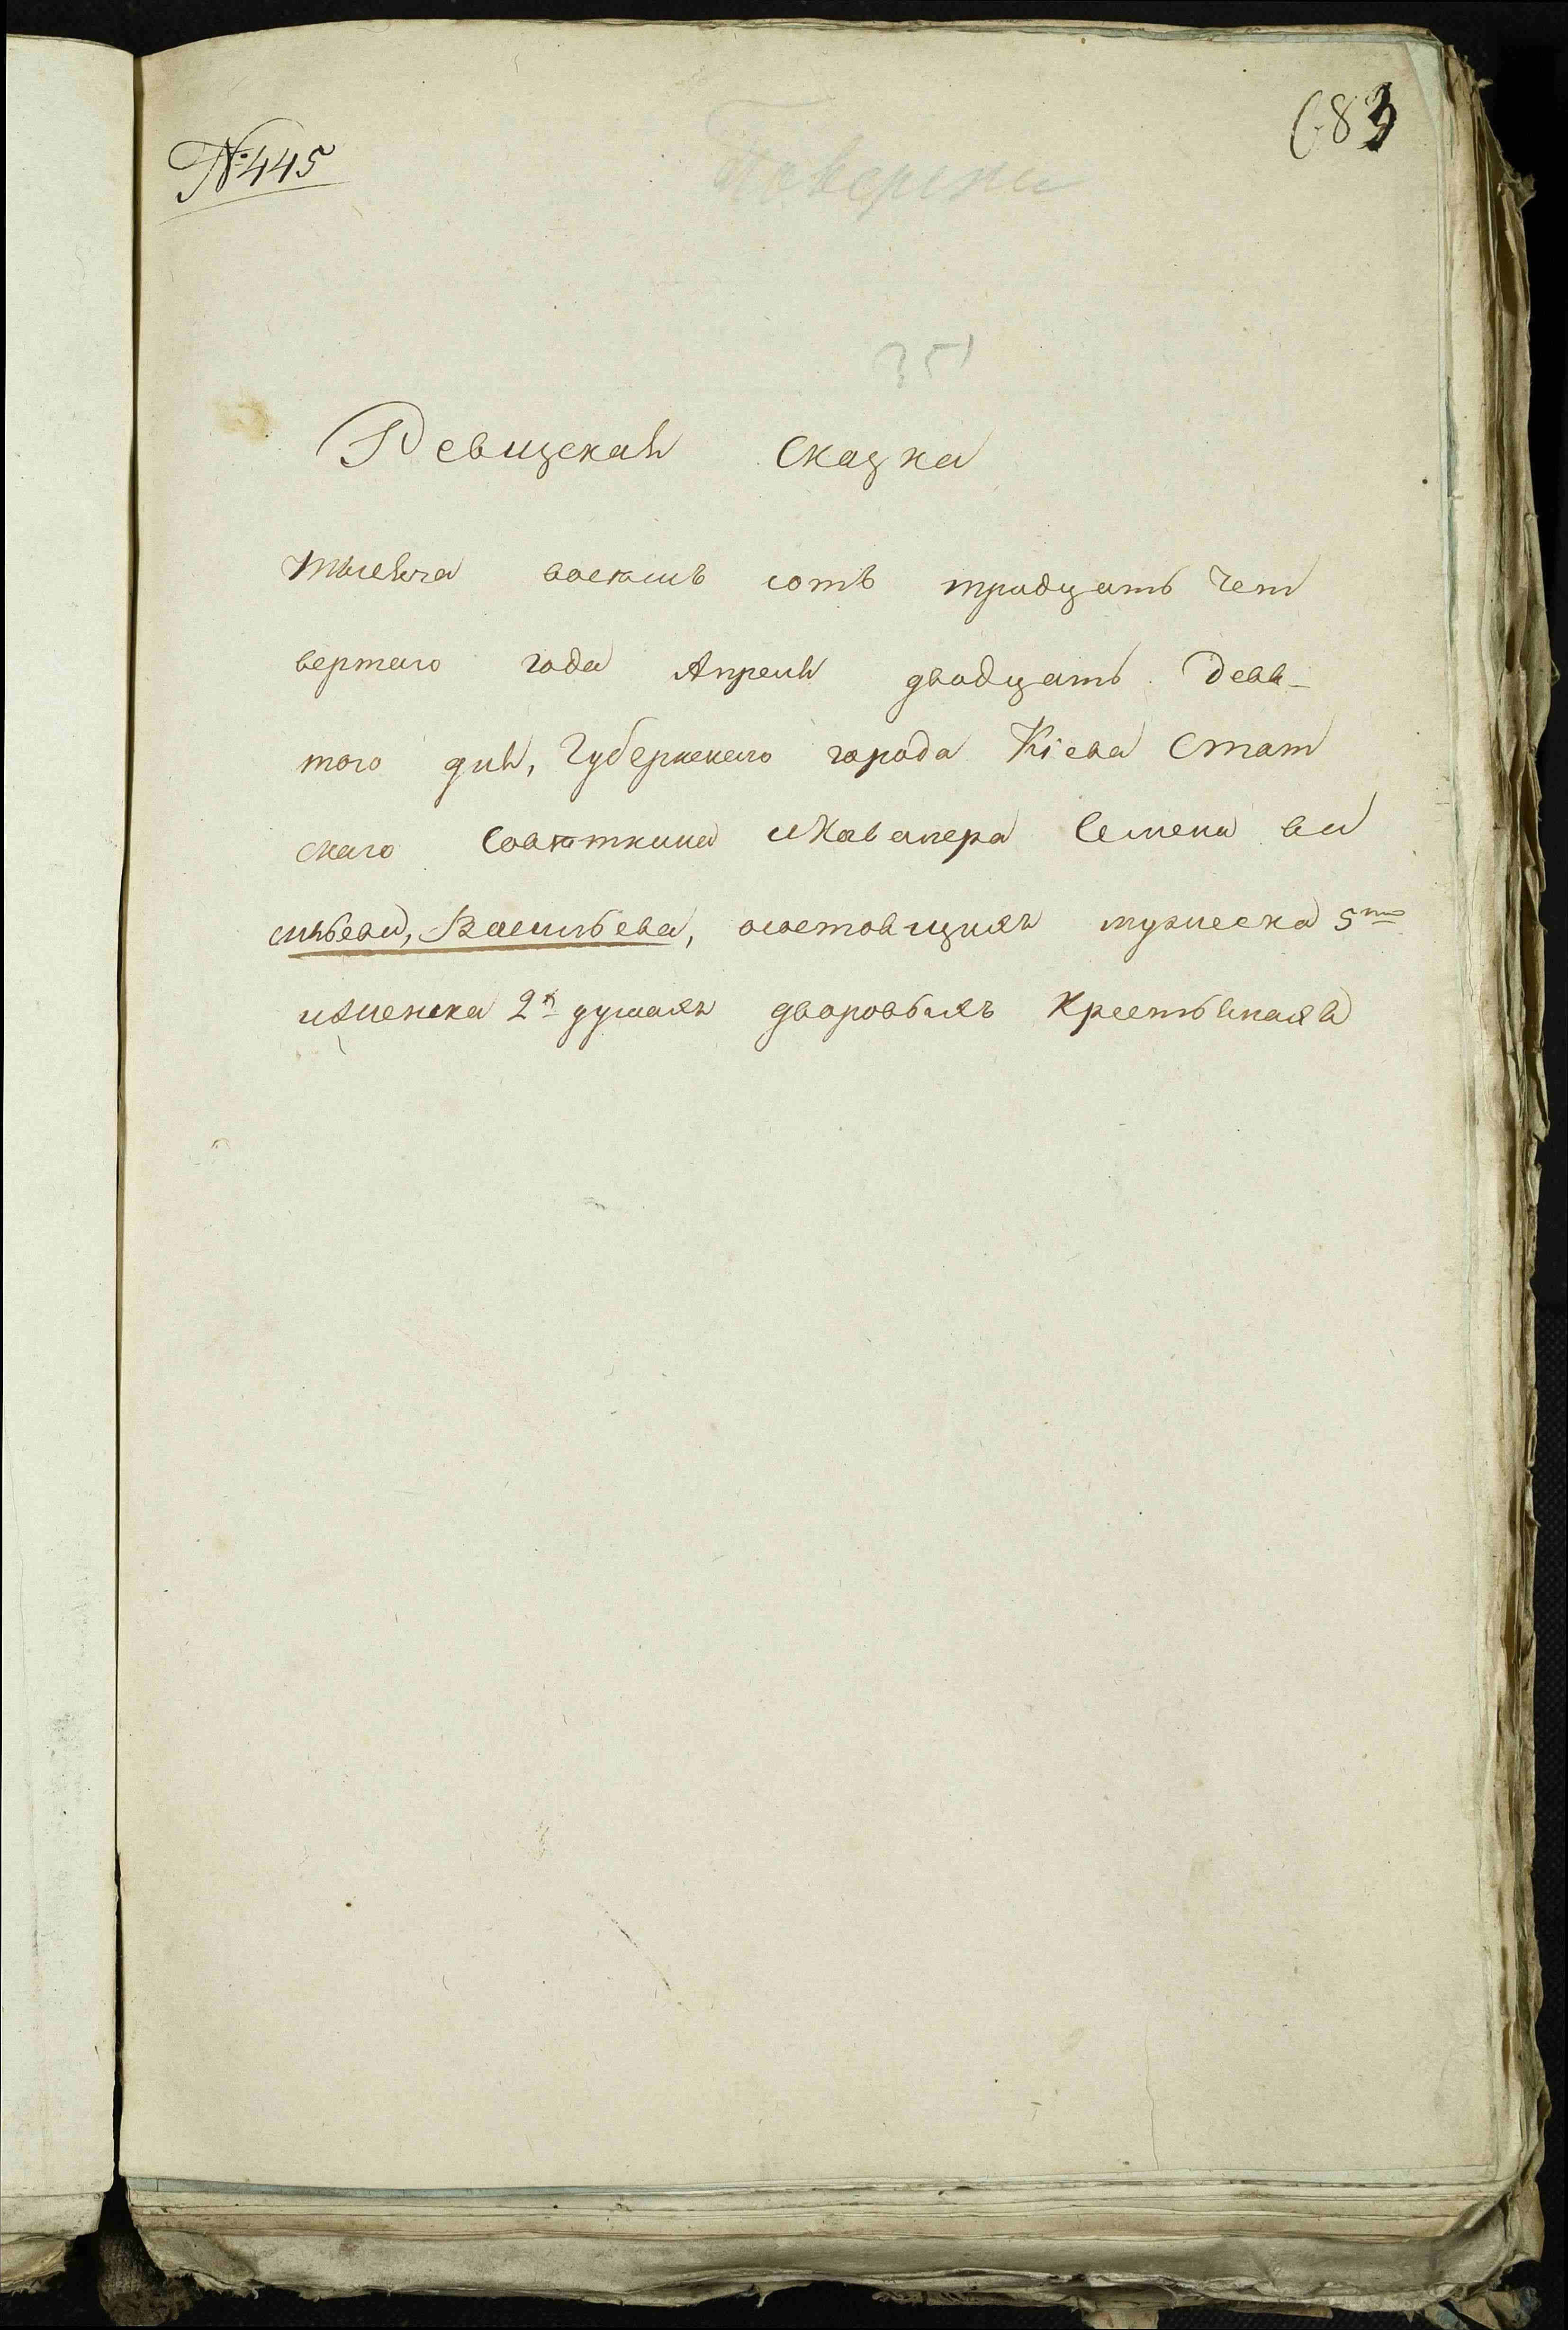 № 445
683
Поверена
351
Ревизская Сказка
тысяча восемь сотъ тридцать чет
вертаго года Апреля двадцать девя-
того дня, Губернскаго города Кіева Стат
скаго Советника и Кавалера Семена ва
сильева, Васильева, осостоящихъ мужеска 5ти
иженска 2х душахъ дворовыхъ Крестьянахъ